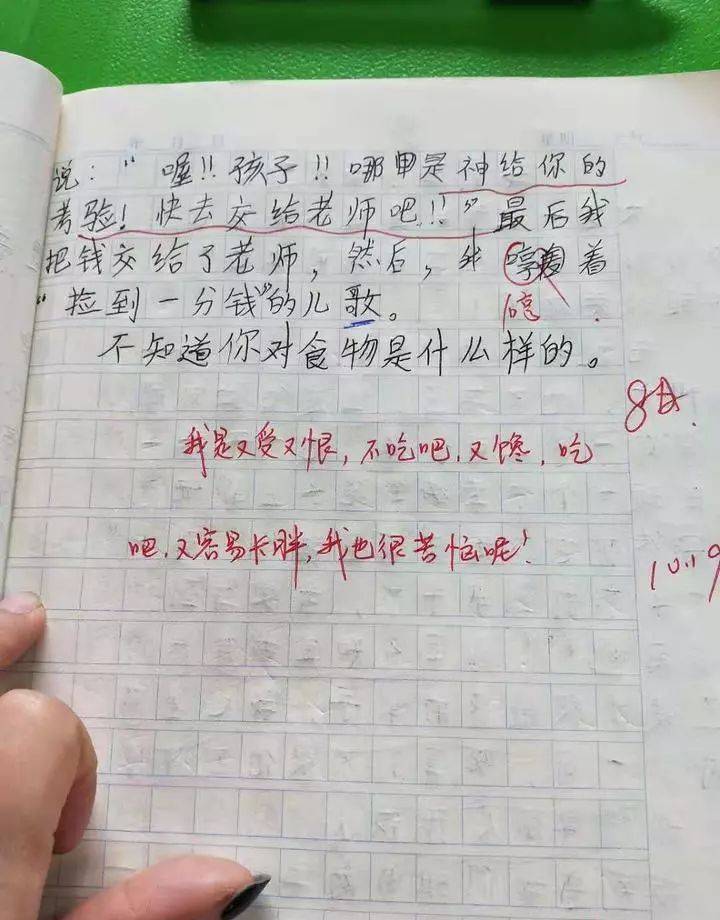 说：“喔!!孩子!!哪里是神给你的
考验！快去交给老师吧!!”最后我
把钱交给了老师，然后，我哼着
“捡到一分钱”的儿歌。
哼
不知道你对食物是什么样的。
8日
我是又爱又恨，不吃吧，又馋，吃
吧，又容易长胖，我也很苦恼呢！
10.19